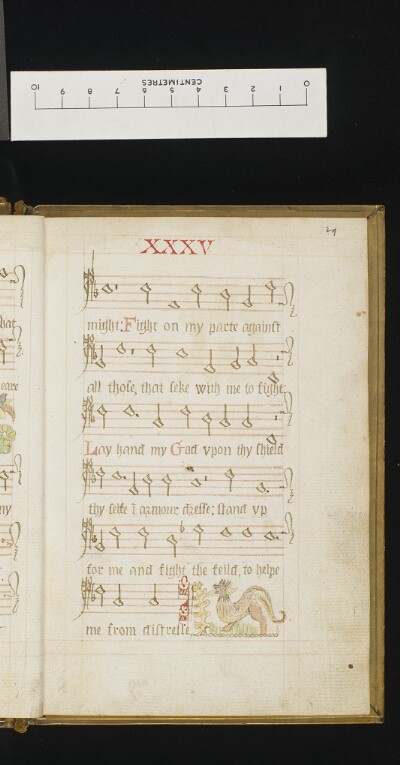 10 9 8 7 6 5 4 3 2 1 0
CENTIMETRES
29
XXXV
might: Fight on my parte against
all those, that seke with me to fight:
Lay hand my God vpon thy shield
thy selfe I armour dresse: stand vp
for me and fight the feild, to helpe
me from distresse
hat
eare
ny